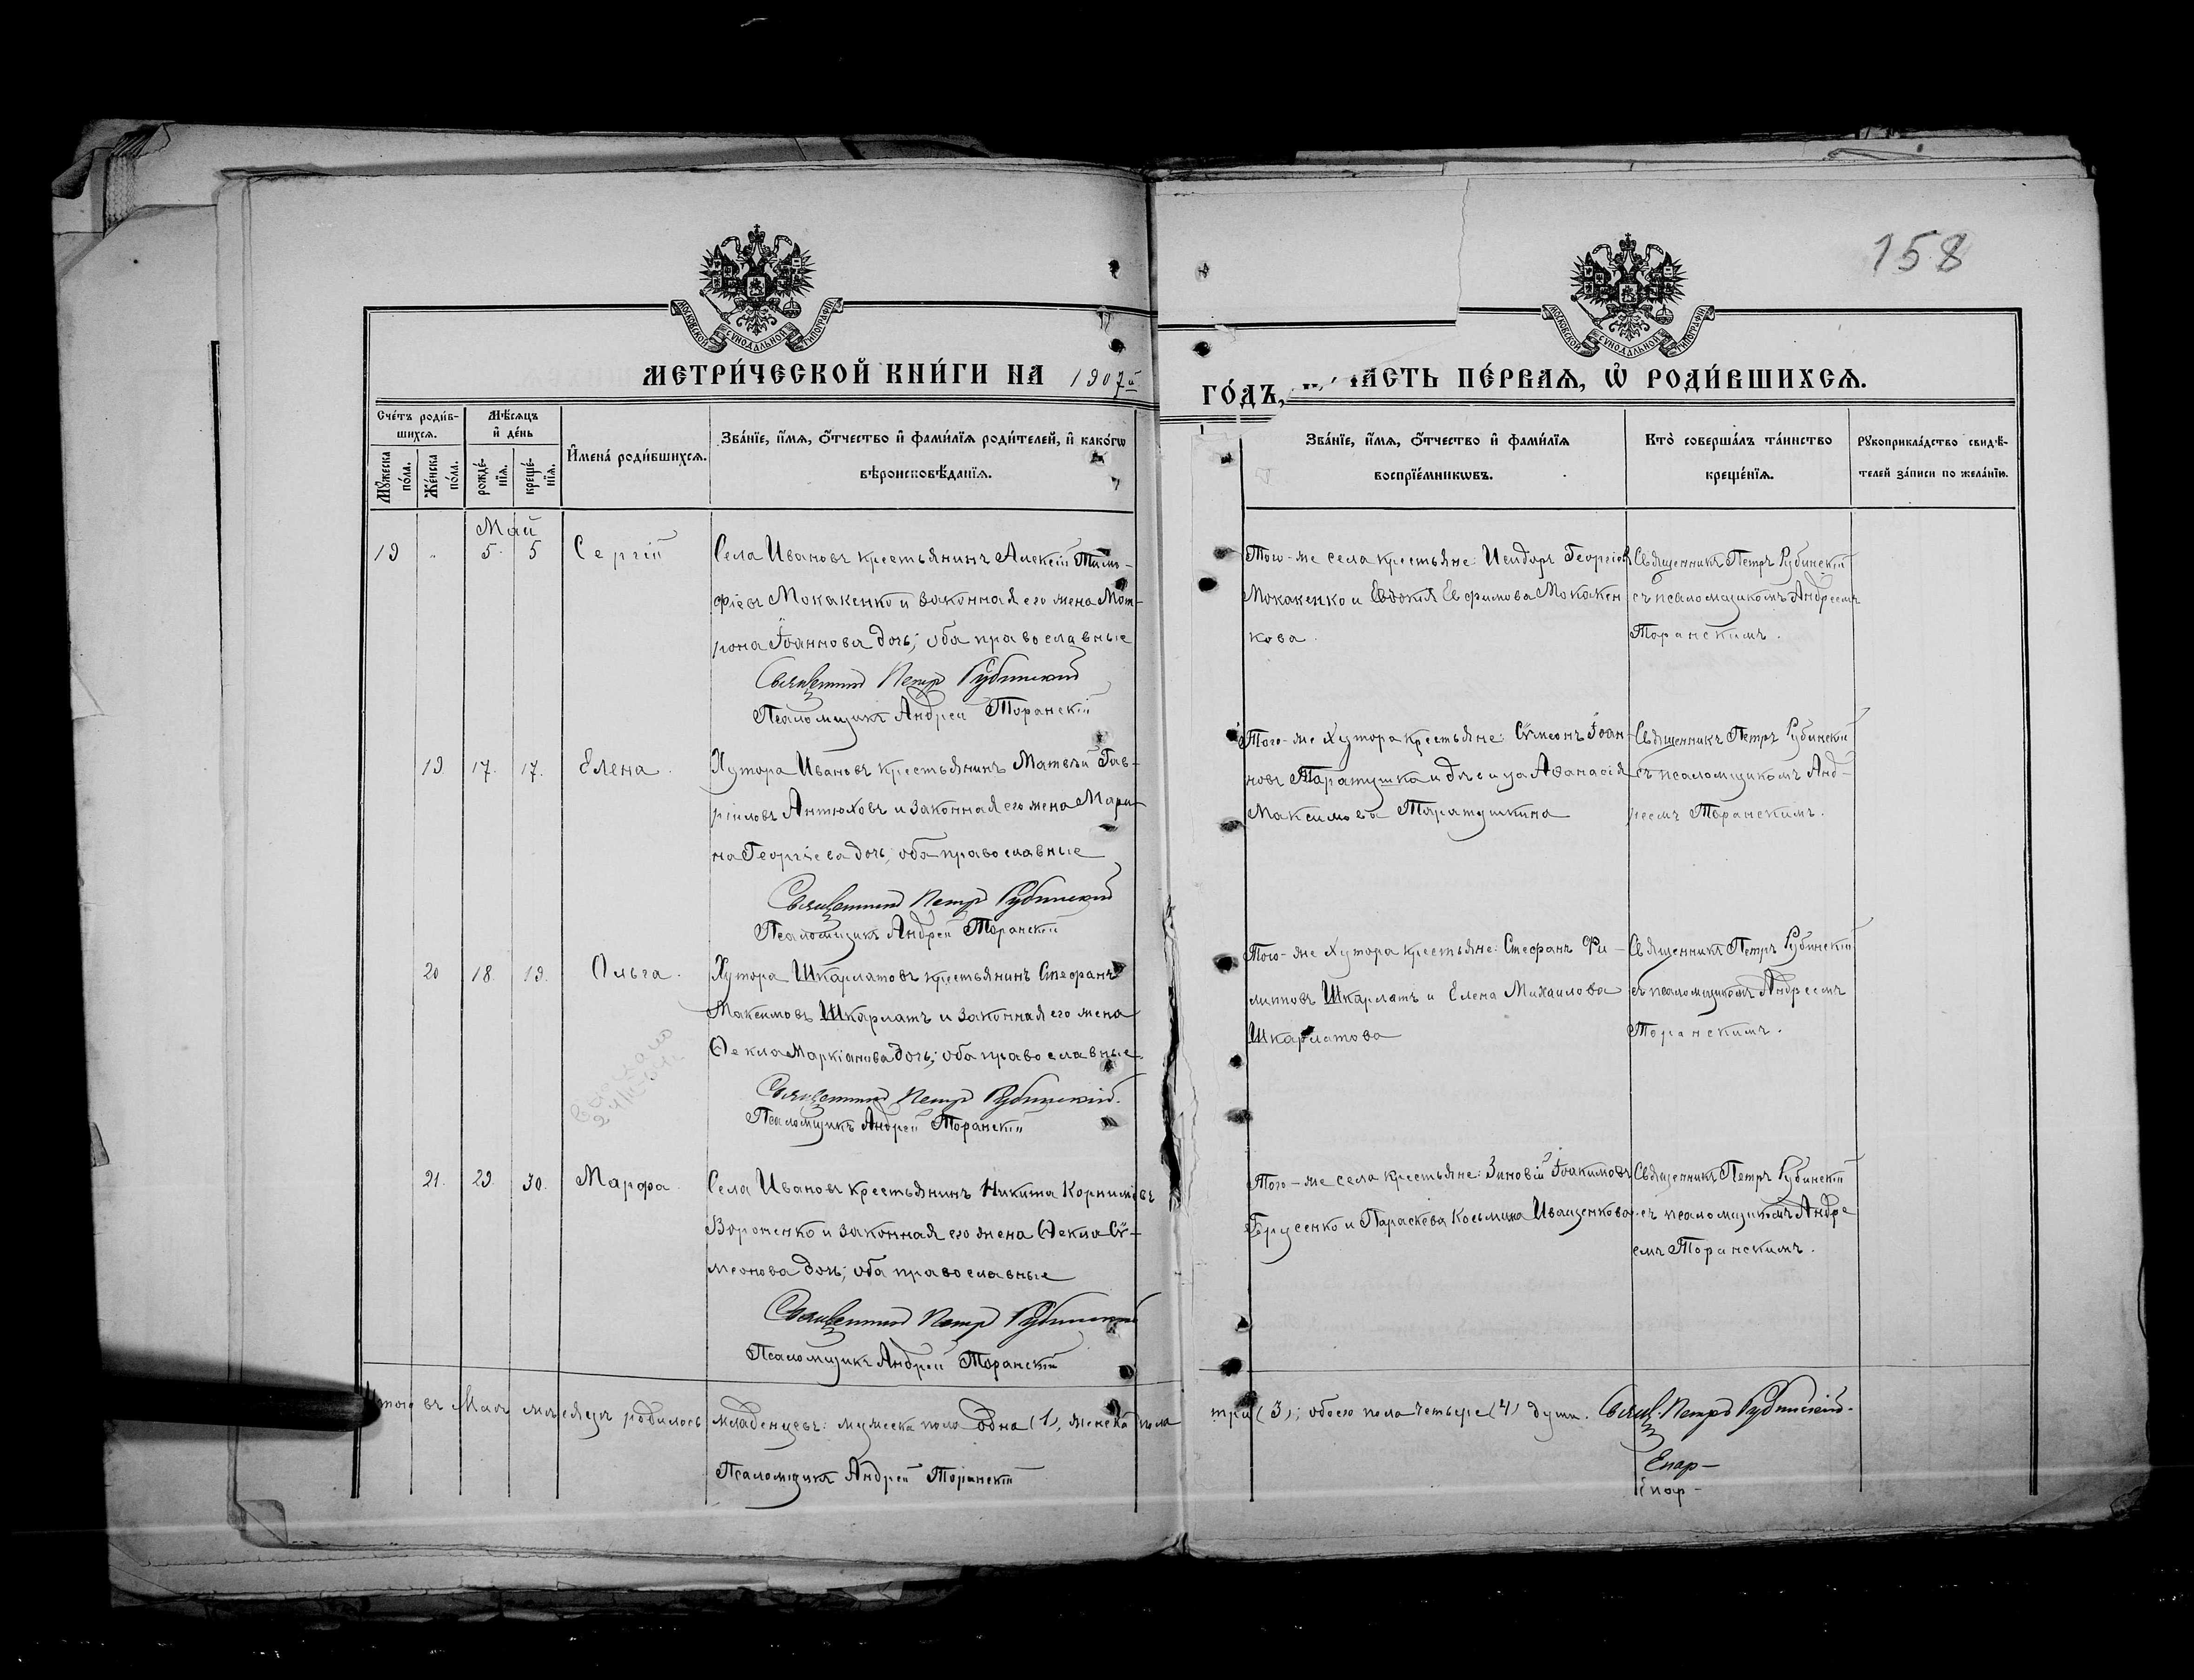 158
МОСКОВСКОЙ СѴНОДАЛЬНОЙ ТИПОГРАФІИ
МОСКОВСКОЙ СѴНОДАЛЬНОЙ ТИПОГРАФІИ
МЕТРИ́ЧЕСКОЙ КНИ́ГИ НА 1907й
ГО́ДЪ, ЧАСТЬ ПЕ́РВАѦ, Ѡ҆ РОДИ́ВШИХСѦ.
Сче́тъ роди́в-
шихсѧ.
Мѣ́сѧцъ
и҆ де́нь
Мꙋ́жеска
по́ла.
Же́нска
по́ла.
рожде́-
нїѧ.
креще́-
нїѧ.
И҆мена̀ роди́вшихсѧ.
Зва́нїе, и҆́мѧ, ѻ҆́тчество и҆ фами́лїѧ роди́телей, и҆ како́гѡ
вѣроисповѣ́данїѧ.
Зва́нїе, и҆́мѧ, ѻ҆́тчество и҆ фами́лїѧ
воспрїе́мникѡвъ.
Кто̀ соверша́лъ та́инство
креще́нїѧ.
Рꙋкоприкла́дство свидѣ́-
телей за́писи по жела́нїю.
Май
19 " 5. 5 Сергій
Села Ивановъ крестьянинъ Алексій Тимо-
фіевъ Мокакенко и законная его жена Мат-
рона Іоаннова дочь; оба православные
Священник Петр Рубинский
Псаломщикъ Андрей Торанскій
Того-же села крестьяне: Исидоръ Георгіевъ
Мокакенко и Евдокія Евфимова Мокакен
кова.
Священникъ Петръ Рубинскій
съ псаломщикомъ Андреемъ
Торанскимъ.
19 17. 17. Елена.
Хутора Ивановъ крестьянинъ Матвѣй Гав-
ріиловъ Антюховъ и законная его жена Мари-
на Георгіева дочь; оба православные
Священник Петр Рубинский
Псаломщикъ Андрей Торанскій
Того-же Хутора крестьяне: Сѵмеонъ Іоан-
новъ Таратушка и дѣвица Аѳанасія
Максимова Таратушкина
Священникъ Петръ Рубинскій
съ псаломщикомъ Анд-
реемъ Торанскимъ.
20 18. 19. Ольга.
Хутора Шкарлатовъ крестьянинъ Стефанъ
Максимовъ Шкарлатъ и законная его жена
Ѳекла Маркіанова дочь; оба православные.
Священник Петр Рубинскій.
Псаломщикъ Андрей Торанскій
Того-же Хутора крестьяне: Стефанъ Фи-
липповъ Шкарлатъ и Елена Михаилова
Шкарлатова
Священникъ Петръ Рубинскій
съ псаломщикомъ Андреемъ
Торанскимъ.
21. 29. 30. Марфа.
Села Ивановъ крестьянинъ Никита Корниловъ
Вороненко и законная его жена Ѳекла Сѵ-
меонова дочь; оба православные
Священник Петр Рубинский
Псаломщикъ Андрей Торанскій
Того-же села крестьяне: Зиновій Іоакимовъ
Брусенко и Параскева Косьмина Иващенкова
Священникъ Петръ Рубинскій
съ псаломщикомъ Андре
емъ Торанскимъ.
того въ Маѣ мѣсяцѣ родилось младенцевъ: мужеска пола одна (1), женска пола
три (3); обоего пола четыре (4) души. Свящ. Петръ Рубинскій.
Псаломщикъ Андрей Торанскій